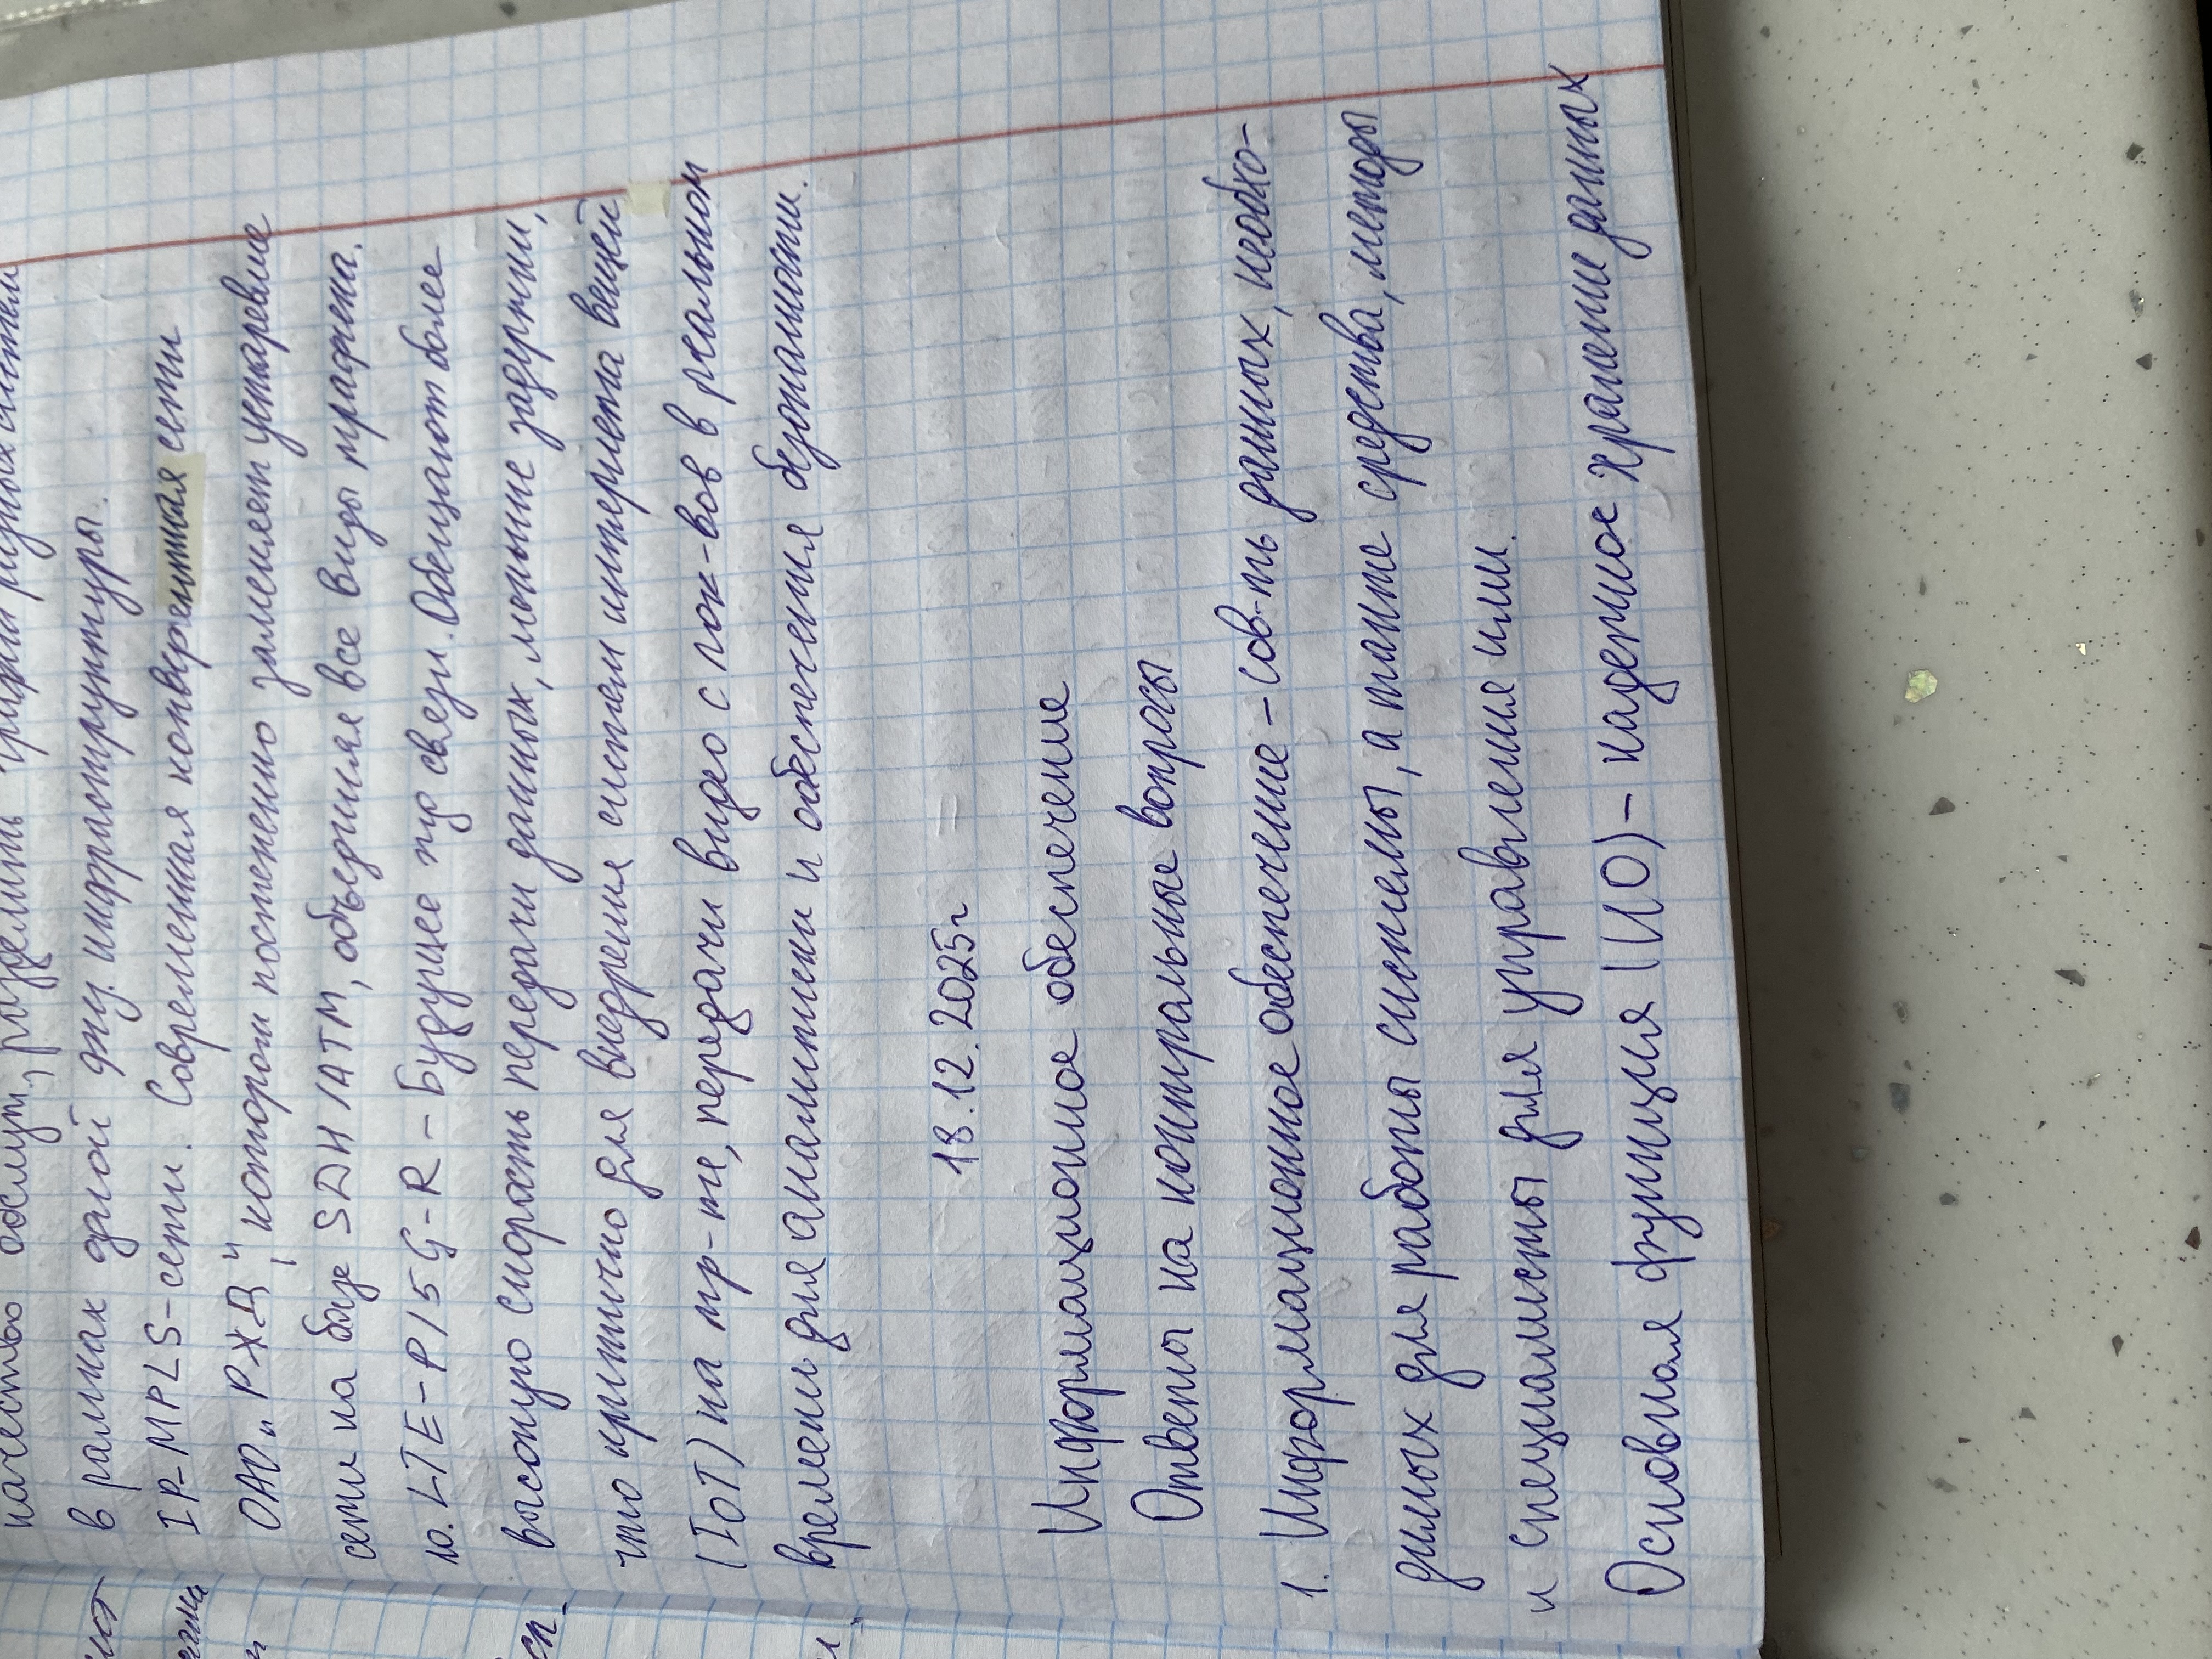 качество обслуж, разделить трафик
в рамках одной физ. инфраструктуры.
IP-MPLS-сети. Современная конвергентная сети
ОАО „РЖД", которой постепенно заменяет устаревшие
сети на базе SDH/ATM, объединяя все виды трафика.
10. LTE-P/5G-R - будущее ж/д связи. Обещают более
высокую скорость передачи данных, меньшие задержки,
что критично для внедрения систем интернета вещей
(IoT) на тр-те, передачи видео с лок-вов в реальном
времени для аналитики и обеспечения безопасности.
18.12.2025г
Информационное обеспечение
Ответы на контральные вопросы
1. Информационное обеспечение - сов-ть данных, необхо-
димых для работы системы, а также средства, методы
и специалисты для управления ими.
Основная функция (ИО) - надежное хранение данных